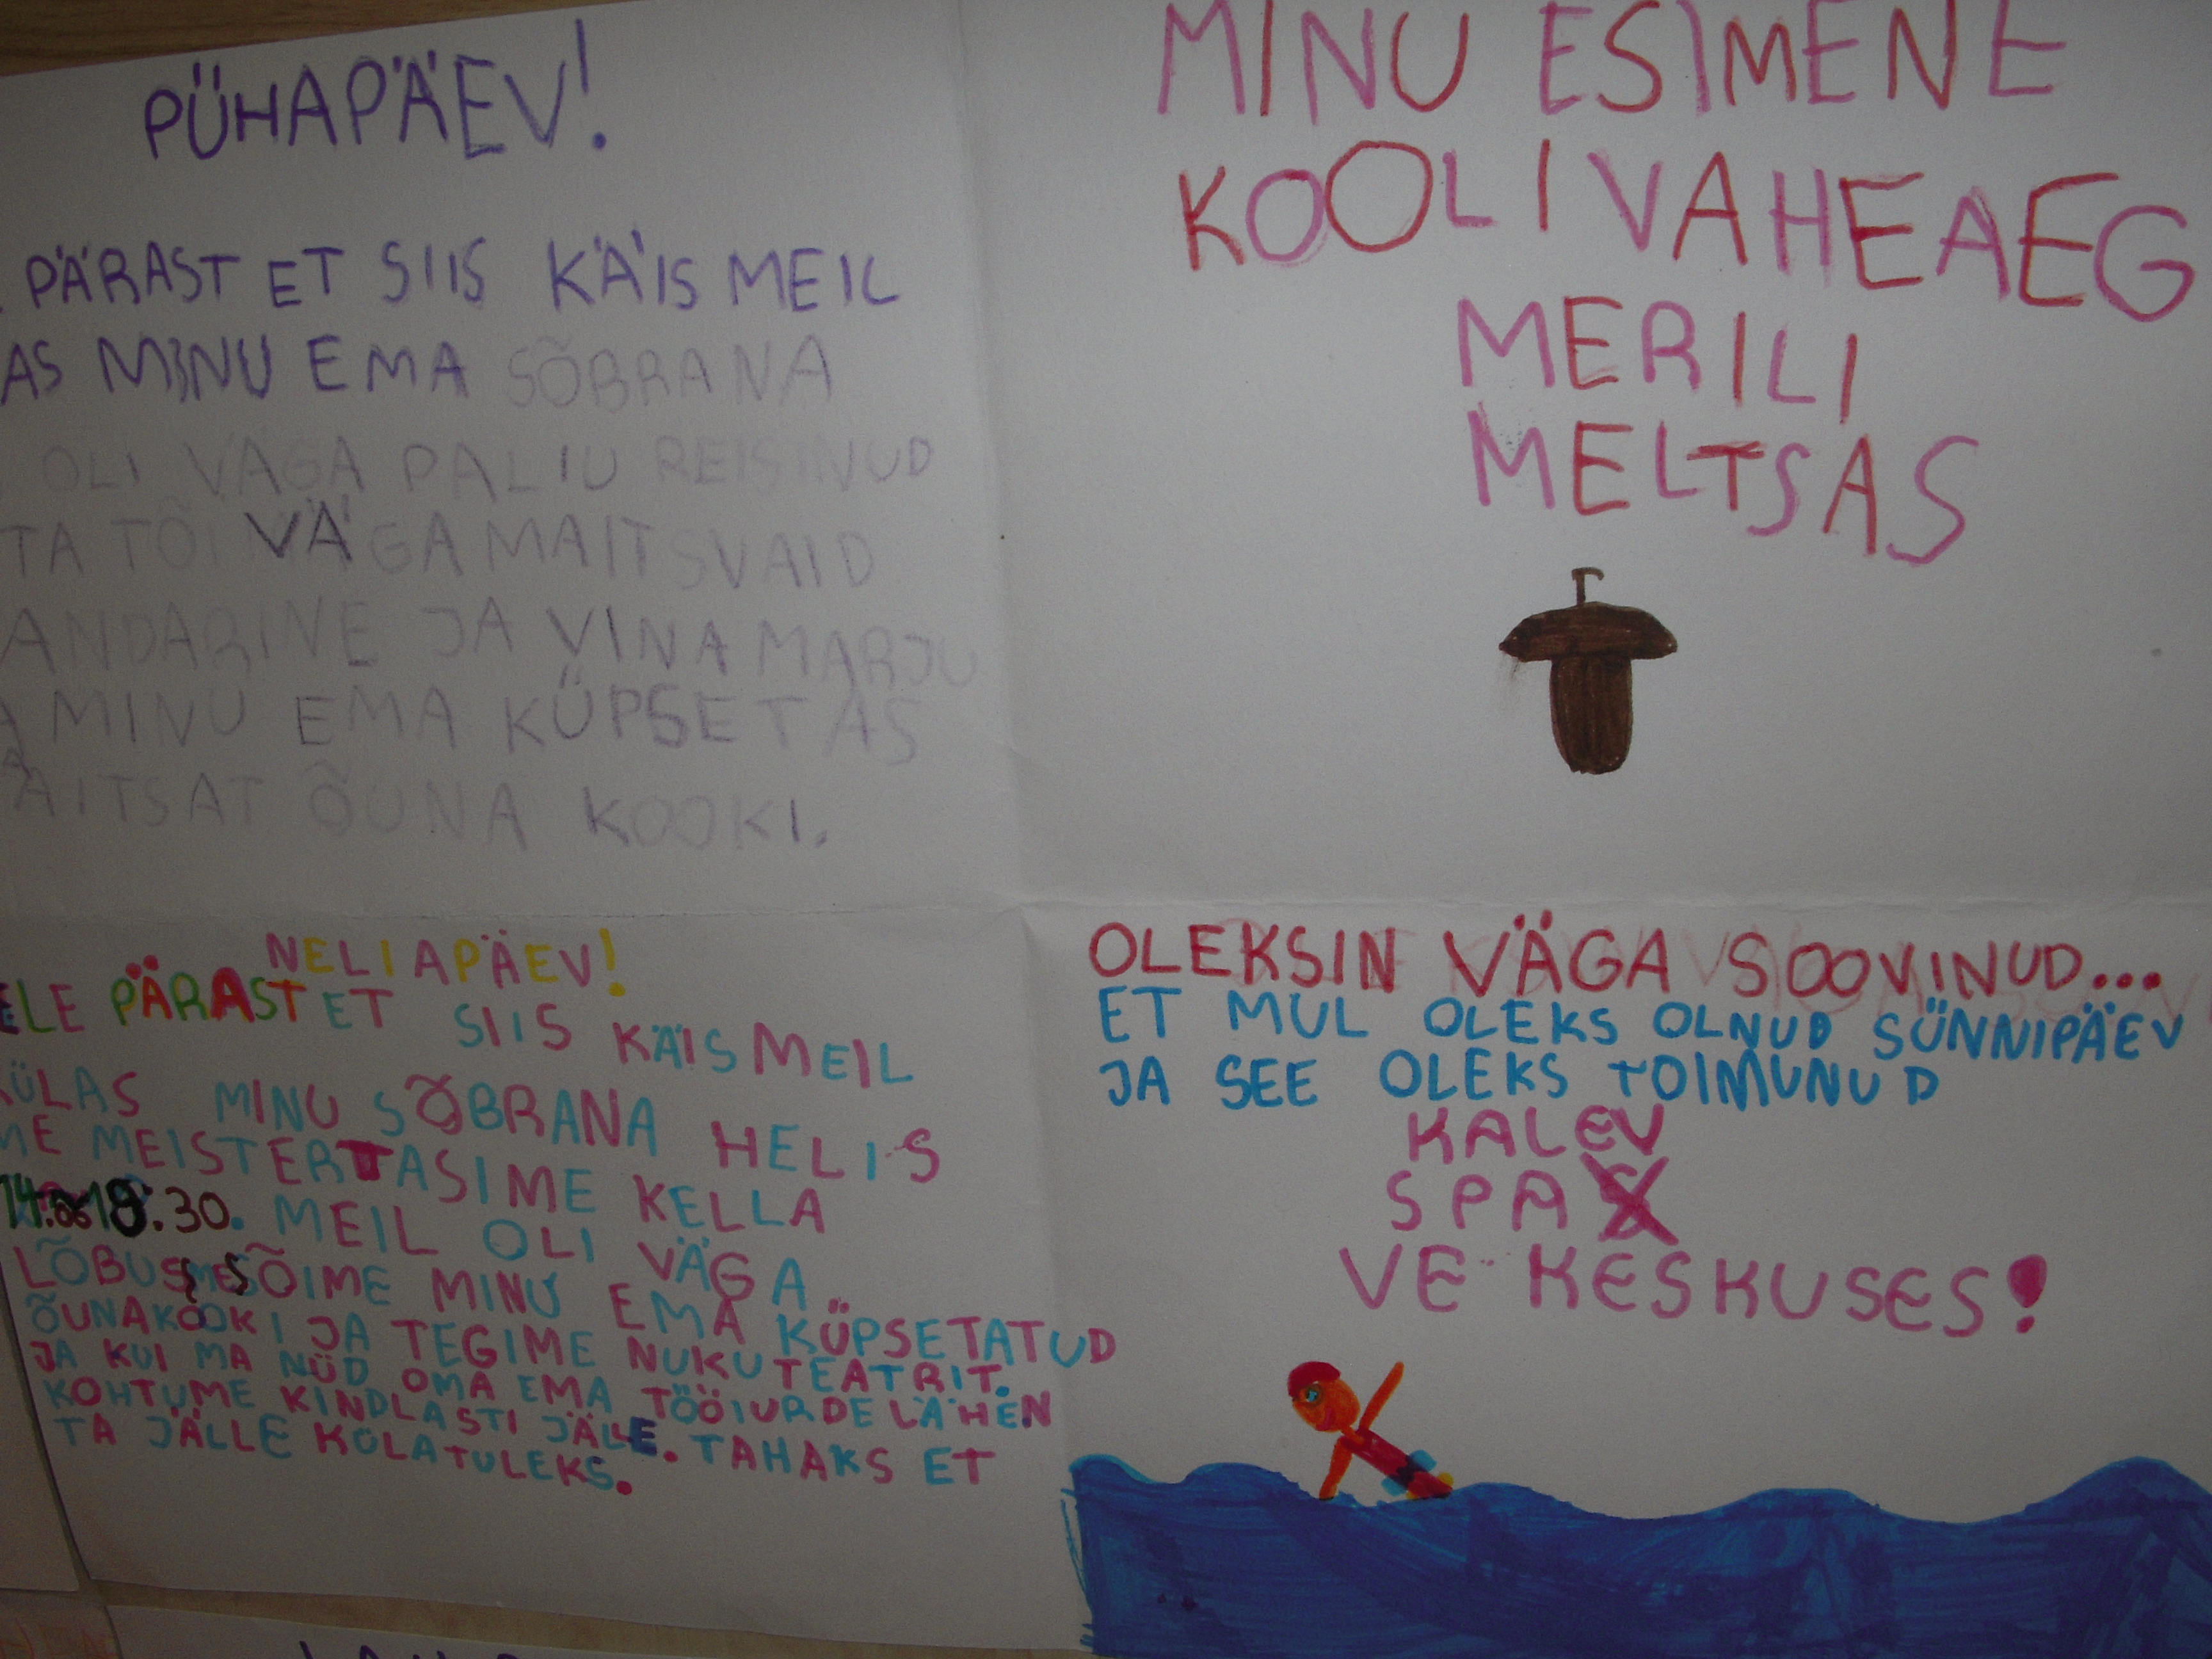 PÜHAPÄEV!
PÄRAST ET SIIS KÄIS MEIL
AS MINU EMA SÕBRANA
OLI VÄGA PALIU REISINUD
TA TÕI VÄGA MAITSVAID
ANDARINE JA VINAMARJU
MINU EMA KÜPSETAS
AITSAT ÕUNA KOOKI.
MINU ESIMENE
KOOLIVAHEAEG
MERILI
MELTSAS
NELIAPÄEV!
ELE PÄRAST ET SIIS KÄIS MEIL
KÜLAS MINU SÕBRANA HELIS
ME MEISTERTASIME KELLA
18.30. MEIL OLI VÄGA
LÕBUS SÕIME MINU EMA KÜPSETATUD
ÕUNAKOOKI JA TEGIME NUKUTEATRIT.
JA KUI MA NÜD OMA EMA TÖÖIURDE LÄHEN
KOHTUME KINDLASTI JÄLLE. TAHAKS ET
TA JÄLLE KÜLATULEKS.
OLEKSIN VÄGA SOOVINUD...
ET MUL OLEKS OLNUD SÜNNIPÄEV
JA SEE OLEKS TOIMUNUD
KALEV
SPA
VE KESKUSES!